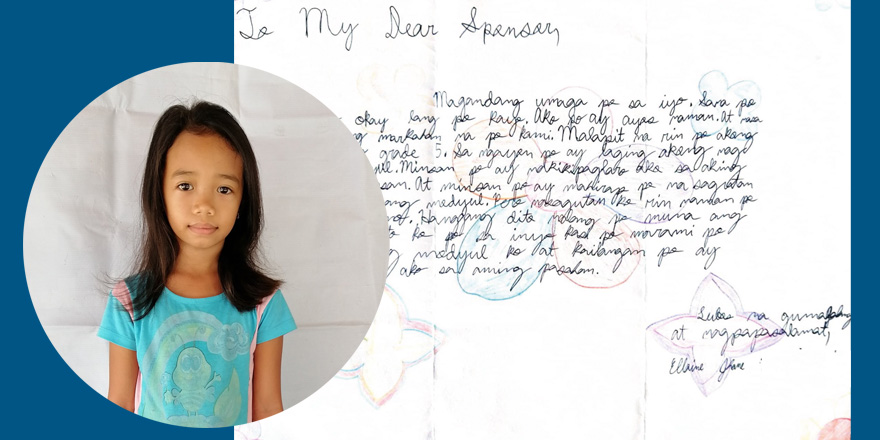 To My Dear Sponsor,
Magandang umaga po sa iyo. Sana po
okay lang po kayo. Ako po ay ayos naman. At nasa
markahan na po kami. Malapit na rin po akong
grade 5. Sa ngayon po ay laging akong nag
Minsan po ay nakikipaglaro ako sa aking
At minsan po ay mahirap po na sagutan
ang modyul. Pero nasagutan ko rin naman po
Hanggang dito nalang po muna ang
ko po sa inyo kasi po marami po
modyul ko at kailangan po ay
ako sa aming pasahan.
Lubos na gumagalang
at nagpapasalamat,
Ellaine Jhane